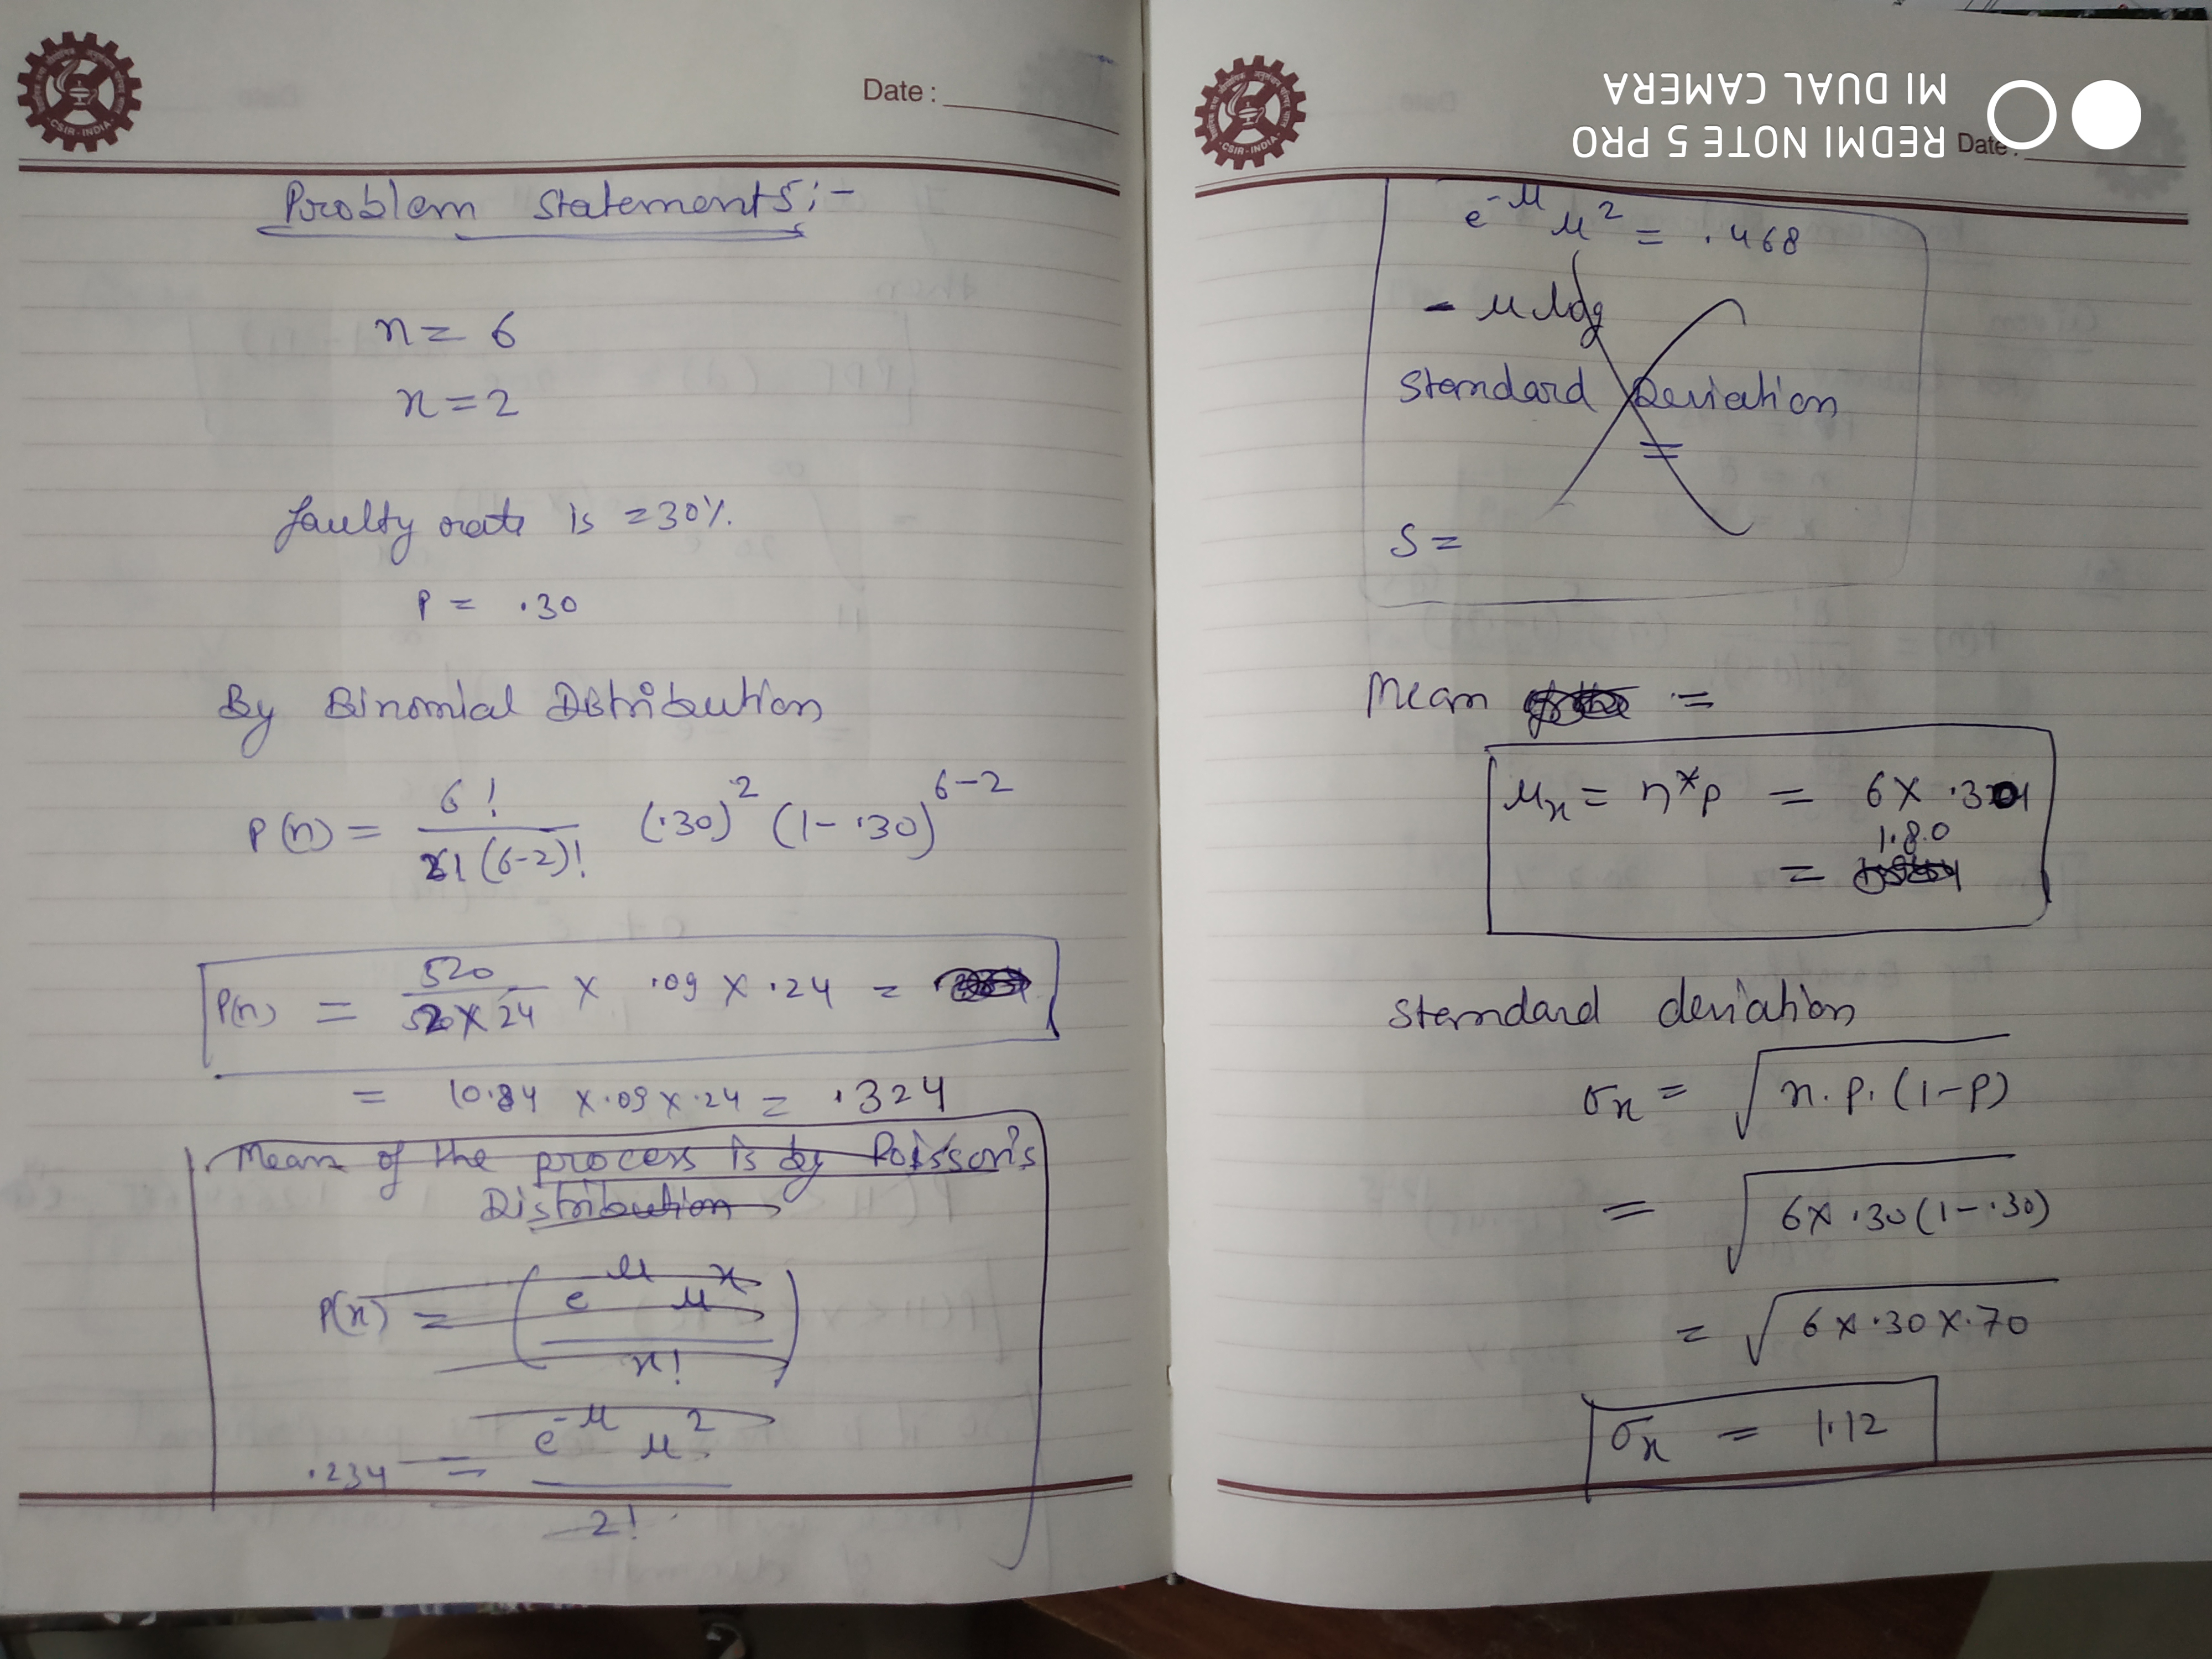 Date :
Problem Statements:-
n = 6
x = 2
faulty rate is = 30%
P = .30
By Binomial Distribution
P(x) = 6! / 2! (6-2)! (.30)^2 (1-.30)^6-2
P(x) = 520 / 2 x 24 x .09 x .24 =
= 10.84 x .09 x .24 = .324
Mean of the process is by Poisson's
Distribution
P(x) = ( e^-μ μ^x / x! )
.234 = e^-μ μ^2 / 2!
Date :
e^-μ μ^2 = .468
- μ log
Standard Deviation
=
S =
Mean =
μx = n*p = 6 x .30
= 1.80
Standard deviation
σx = √n.p.(1-p)
= √6x.30(1-.30)
= √6x.30x.70
σx = 1.12
CSIR-INDIA
CSIR-INDIA
REDMI NOTE 5 PRO
MI DUAL CAMERA